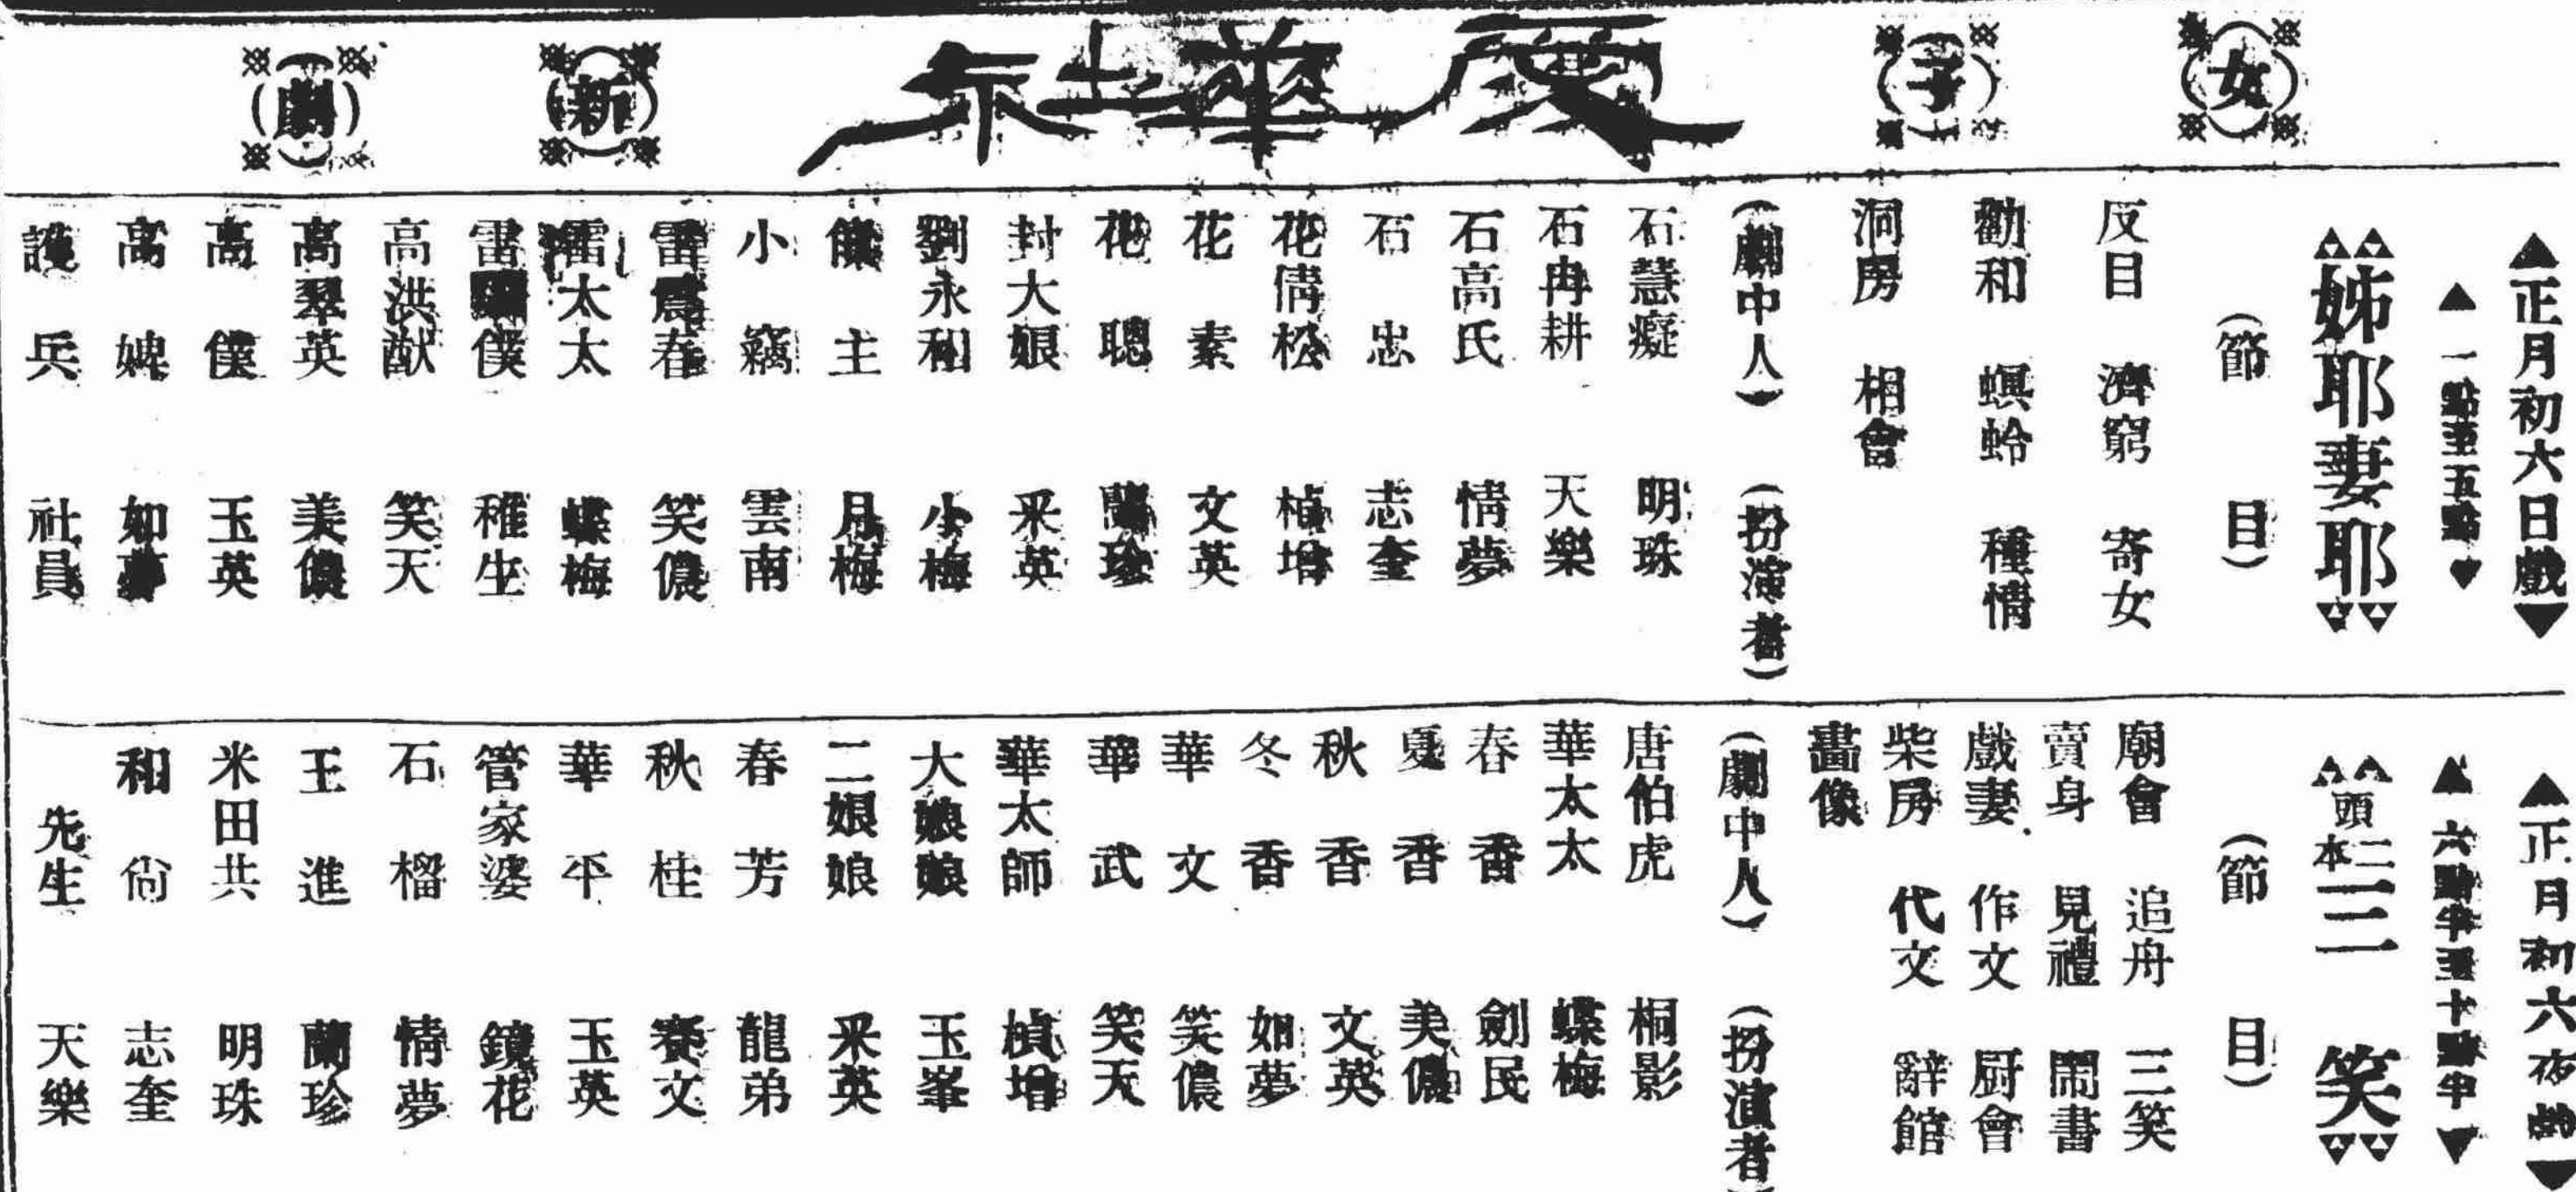 女子慶華社新劇
▲正月初六日戲▼
▲一點至五點▼
姊耶妻耶
(節目)
反目 濟窮 寄女
勸和 螟蛉 種情
洞房 相會
(劇中人) (扮演者)
石慧癡 明珠
石冉耕 天樂
石高氏 情夢
石忠 志奎
花倩松 楨增
花素 文英
花聰 蘭珍
封大娘 采英
劉永和 小梅
主 月梅
小竊 雲南
雷震春 笑儂
雷太太 蝶梅
雷僕 稚生
高洪猷 笑天
高翠英 美儂
高僕 玉英
高婢 如夢
護兵 社員
▲正月初六夜戲▼
▲六點半至十點半▼
頭二本三笑
(節目)
廟會 追舟 三笑
賣身 見禮 鬧書
戲妻 作文 厨會
柴房 代文 辭館
畵像
(劇中人) (扮演者)
唐伯虎 桐影
華太太 蝶梅
春香 劍民
夏香 美儂
秋香 文英
冬香 如夢
華文 笑儂
華武 笑天
華太師 楨增
大娘娘 玉峯
二娘娘 采英
春芳 龍弟
秋桂 賽文
華平 玉英
管家婆 鏡花
石榴 情夢
王進 蘭珍
米田共 明珠
和尙 志奎
先生 天樂